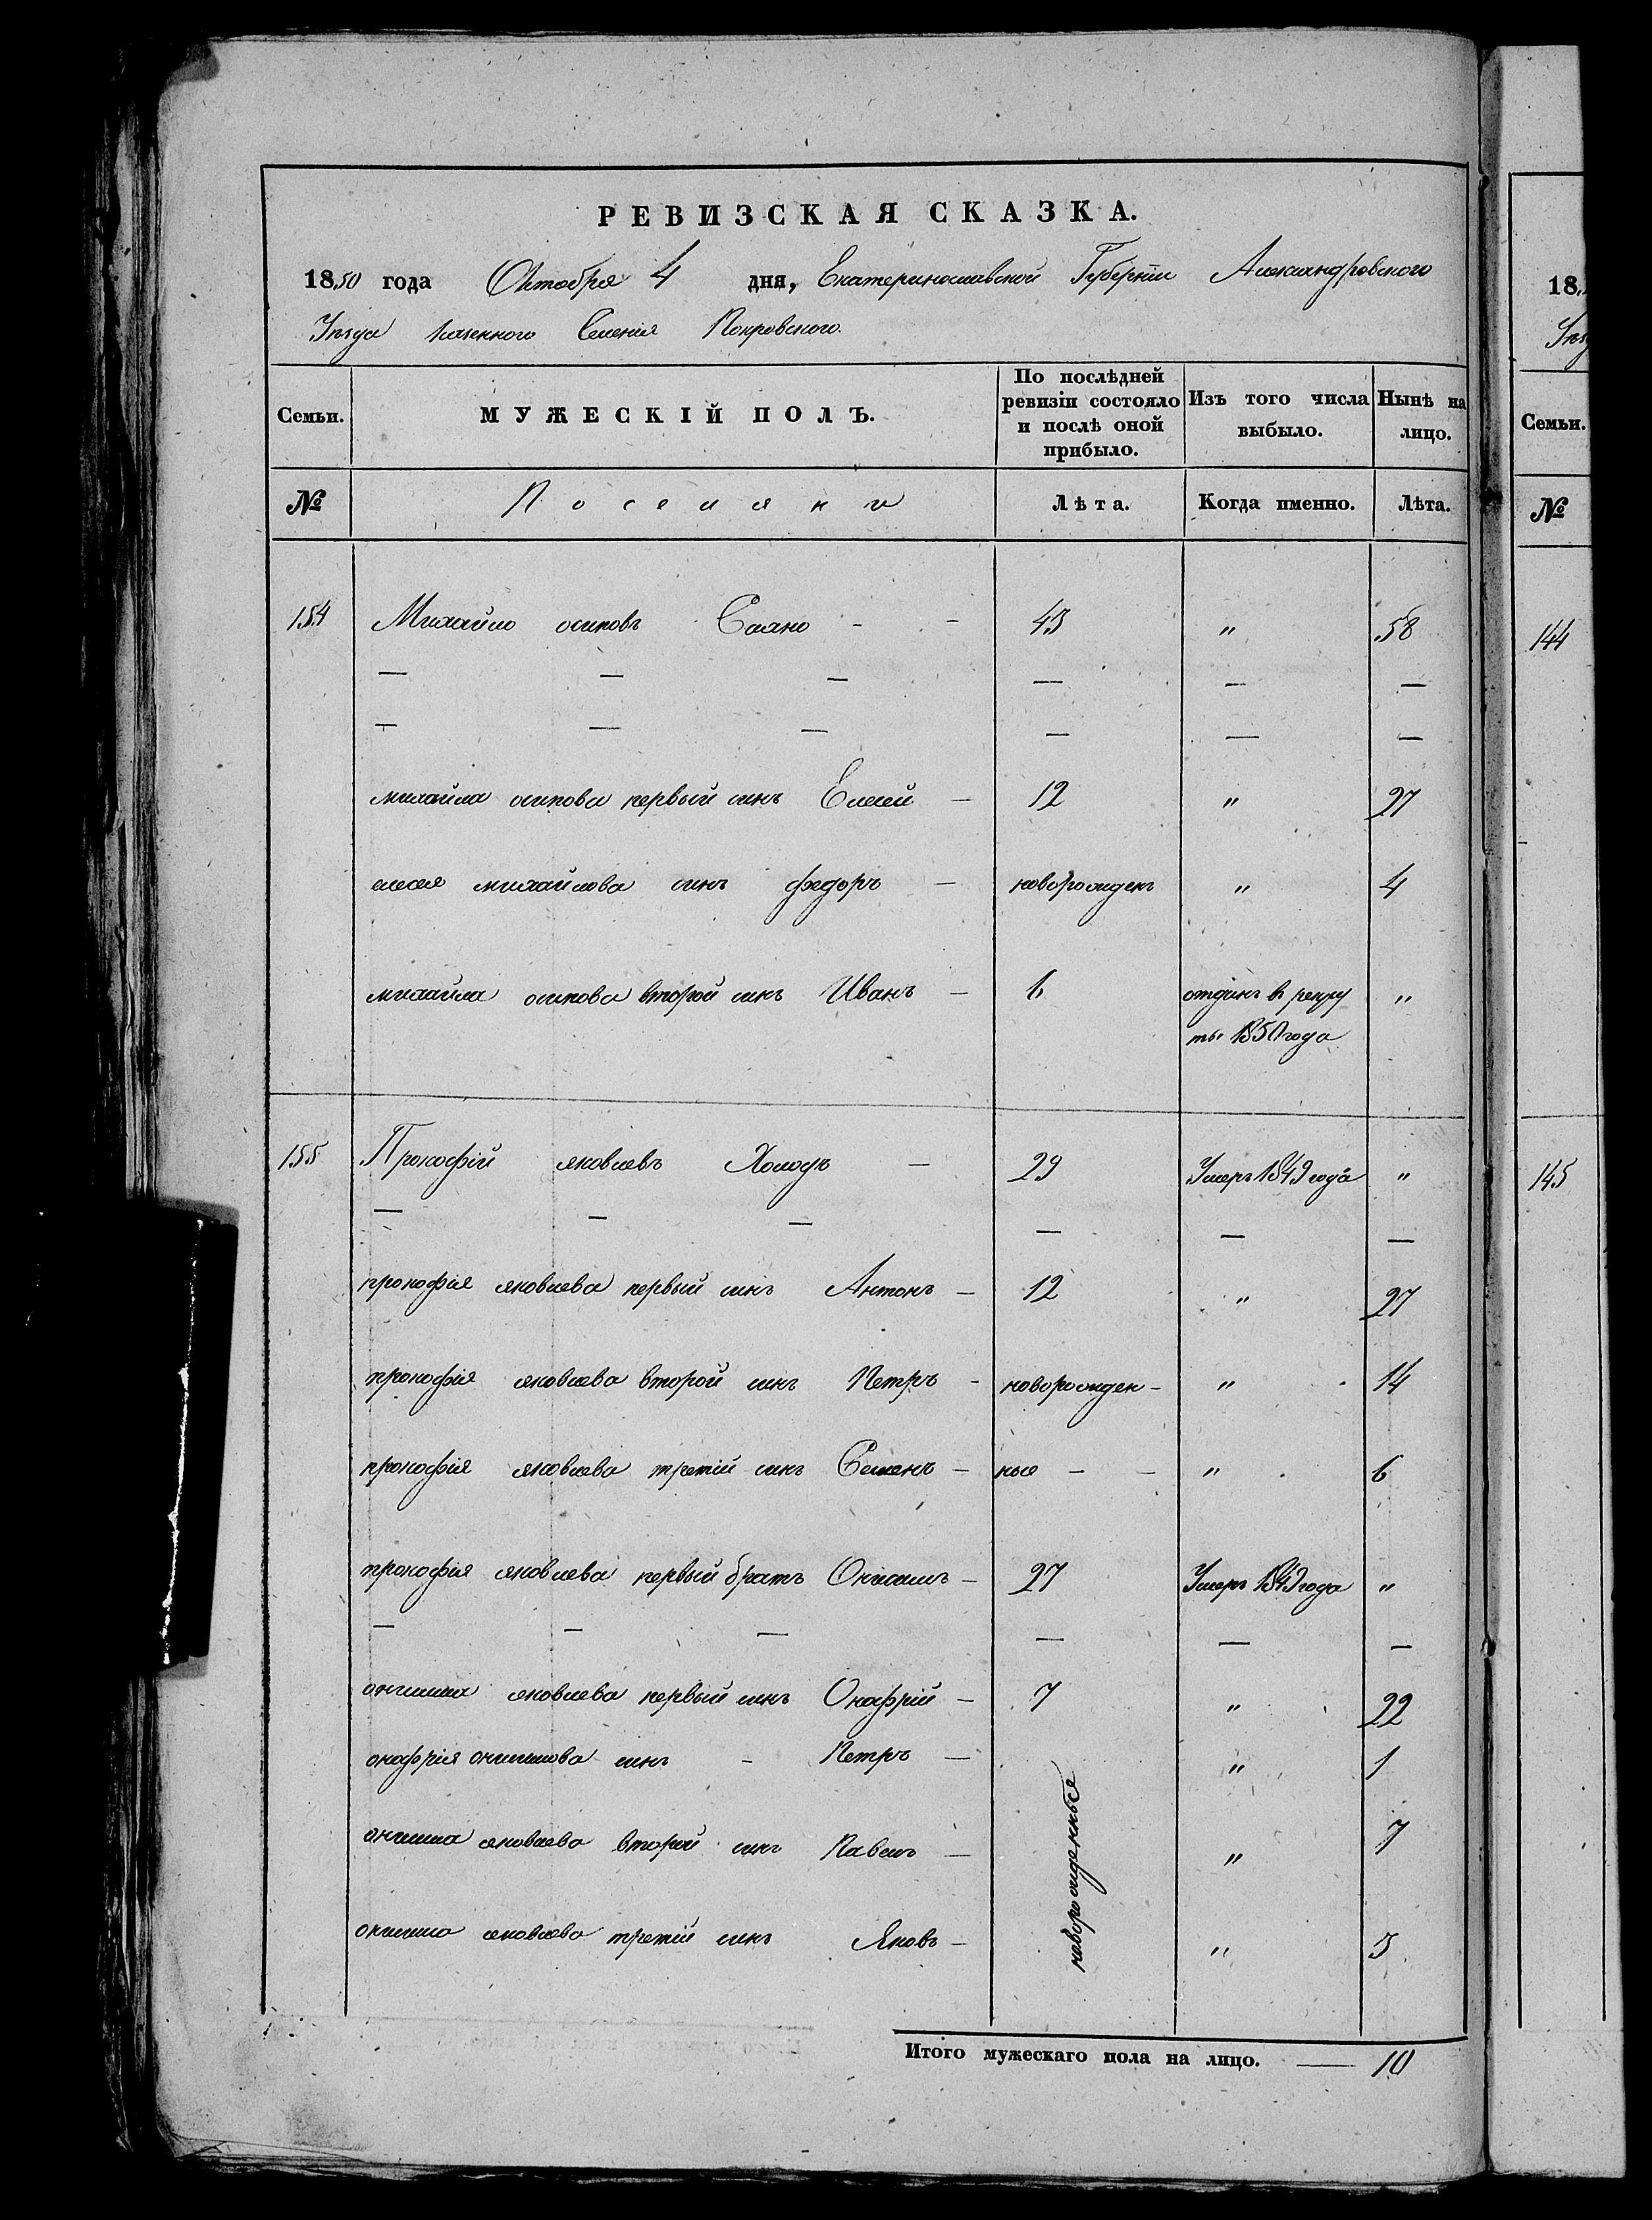 РЕВИЗСКАЯ СКАЗКА.
1850 года Октября 4 дня, Екатеринославской Губерніи Александровского
Уѣзда казенного Селенія Покровского.
Семьи. МУЖЕСКІЙ ПОЛЪ. По послѣдней ревизіи состояло и послѣ оной прибыло. Изъ того числа выбыло. Нынѣ на лицо.
№ Поселяни Лѣта. Когда именно. Лѣта.
154 Михайло осиповъ Саяно - - 43 " 58
— — — — — —
— — — — — —
михайла осипова первый синъ Елисей — 12 " 27
елисея михайлова синъ федоръ — новорожденъ " 4
михайла осипова второй синъ Иванъ — 6 отданъ в рекру "
ты 1850 года
155 Прокофій яковлевъ Холодъ — 29 Умеръ 1849 года "
— — — — — —
прокофія яковлева первый синъ Антонъ — 12 " 27
прокофія яковлева второй синъ Петръ - новорожден- " 14
прокофія яковлева третій синъ Семенъ — ные - - " 6
прокофія яковлева первый братъ Онисимъ — 27 Умеръ 1849 года "
— — — — — —
онисима яковлева первый синъ Онафрій — 7 " 22
онафрія онисимова синъ - Петръ — " 1
онисима яковлева второй синъ Павелъ — новорожденные " 7
онисима яковлева третій синъ Яковъ — " 3
Итого мужескаго пола на лицо. — 10
18
Уѣз
Семьи.
№
144
145